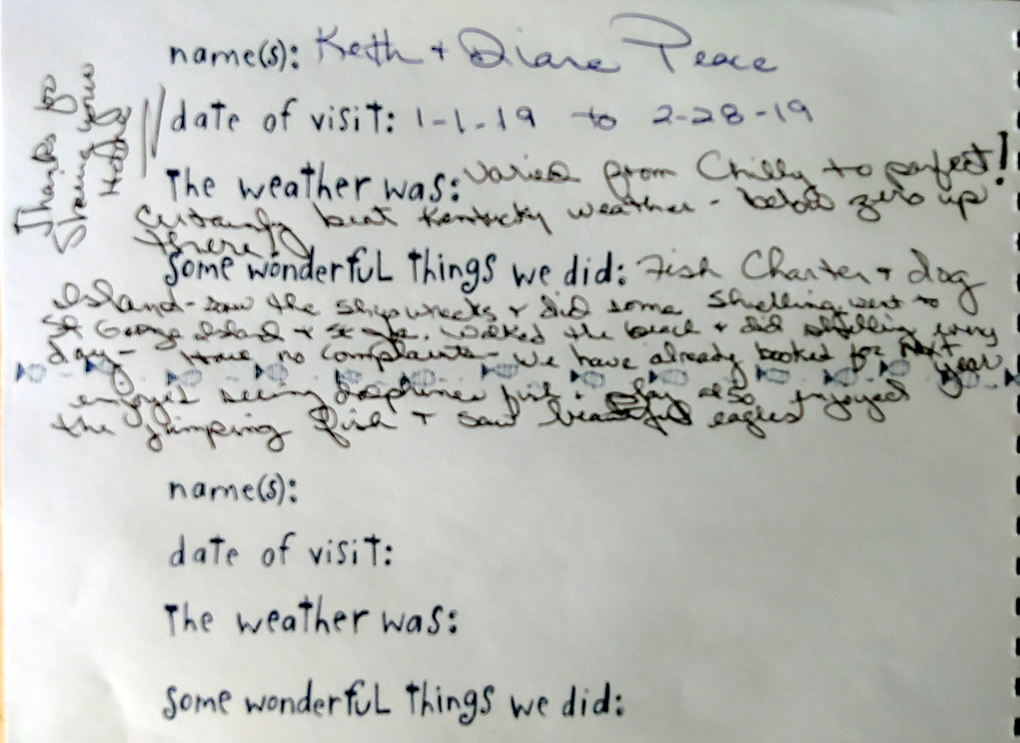 name(s): Keith + Diane Peace
date of visit: 1-1-19 to 2-28-19
The weather was: varied from Chilly to perfect!
Certainly beat Kentucky weather - below zero up
there!
Some wonderful things we did: Fish Charter + dog
Island - saw the shipwrecks + did some Shelling, went to
St George Island + St . Walked the beach + did shelling every
day - Have no complaints - we have already booked for Next year
enjoyed seeing fish. also enjoyed
the jumping fish + saw beautiful eagles
Thanks for
Sharing your
Home
name(s):
date of visit:
The weather was:
Some wonderful things we did: